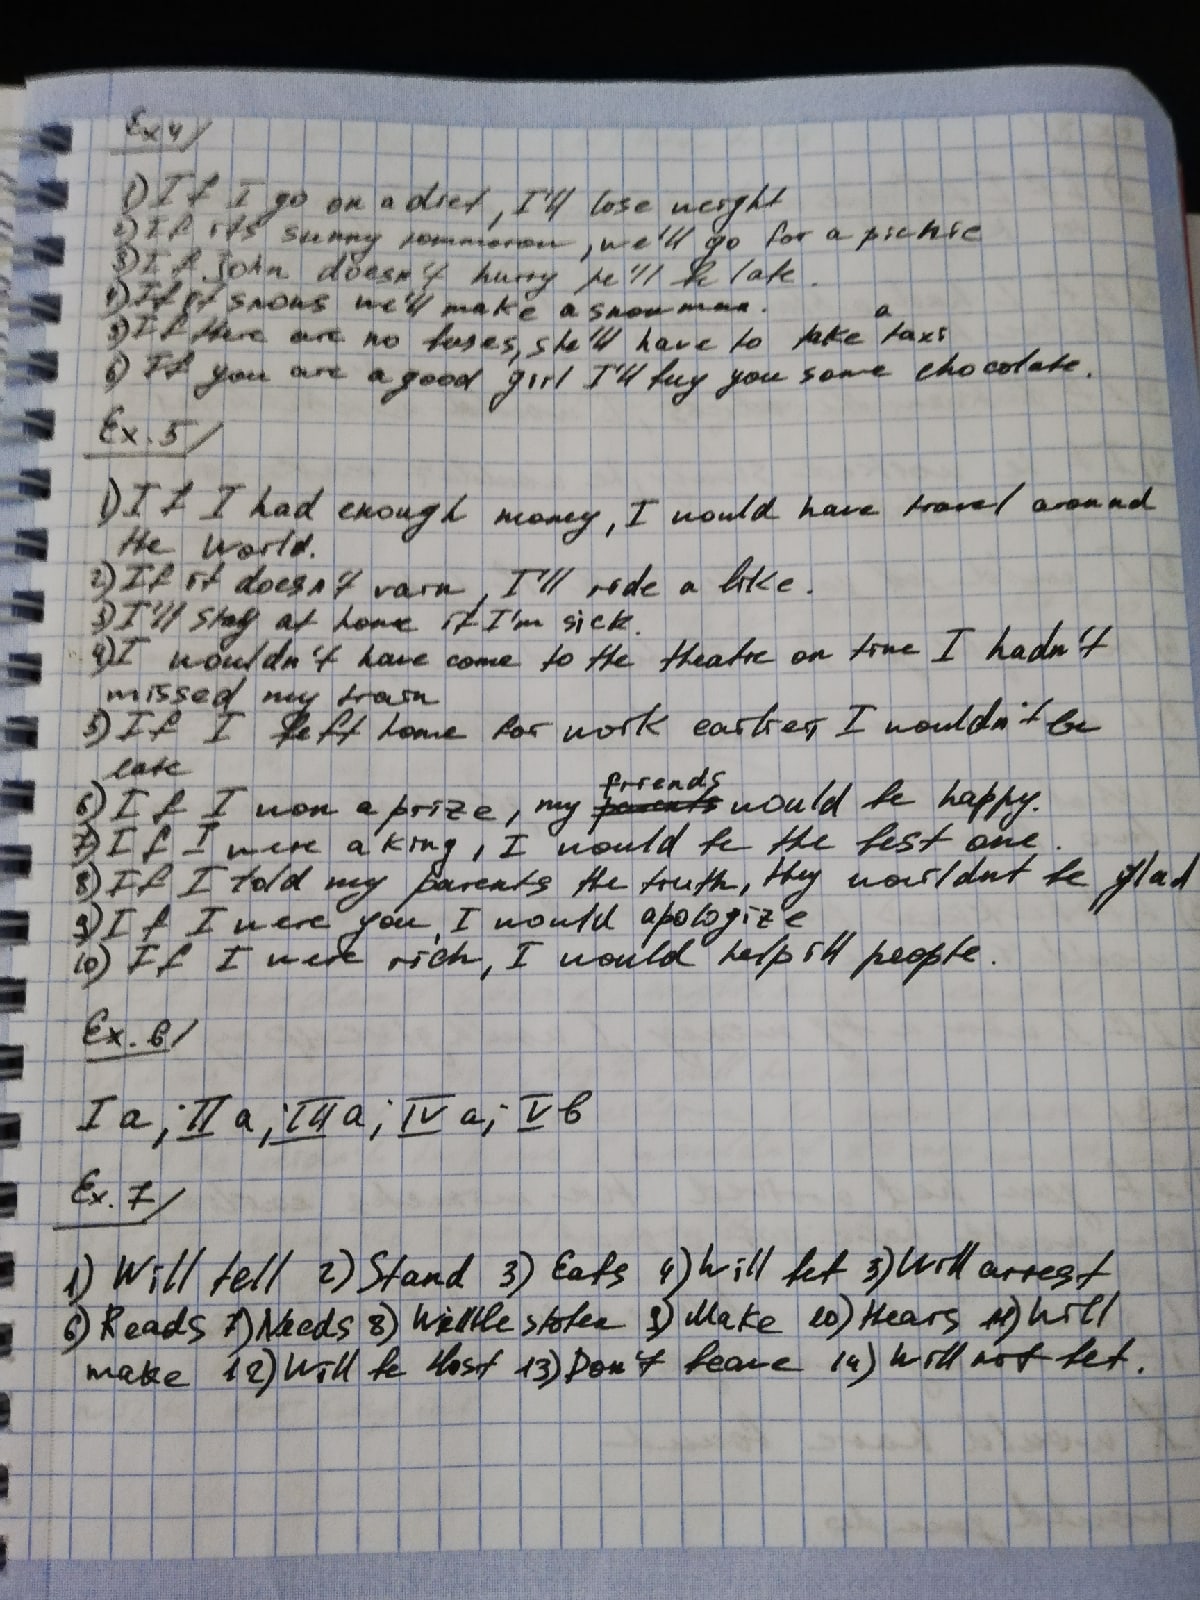 Ex 4/
1) If I go on a diet, I'll lose weight
2) If its sunny tommorow, we'll go for a picnic
3) If John doesn't hurry he'll be late.
4) If it snows we'll make a snowman.
a
5) If there are no buses, she'll have to take taxi
6) If you are a good girl I'll buy you some chocolate.
Ex. 5/
1) If I had enough money, I would have travel around
the world.
2) If it doesn't rain, I'll ride a bike.
3) I'll stay at home if I'm sick.
4) I wouldn't have come to the theatre on time I hadn't
missed my train
5) If I left home for work earlier, I wouldn't be
late
friends
6) If I won a prize, my parents would be happy.
7) If I were a king, I would be the best one.
8) If I told my parents the truth, they wouldnt be glad
9) If I were you, I would apologize
10) If I were rich, I would help ill people.
Ex. 6/
I a; II a; III a; IV a; V b
Ex. 7/
1) Will tell 2) Stand 3) Eats 4) Will let 5) Will arrest
6) Reads 7) Needs 8) stolen 9) Make 10) Hears 11) Will
make 12) Will be lost 13) Don't leave 14) Will not let.